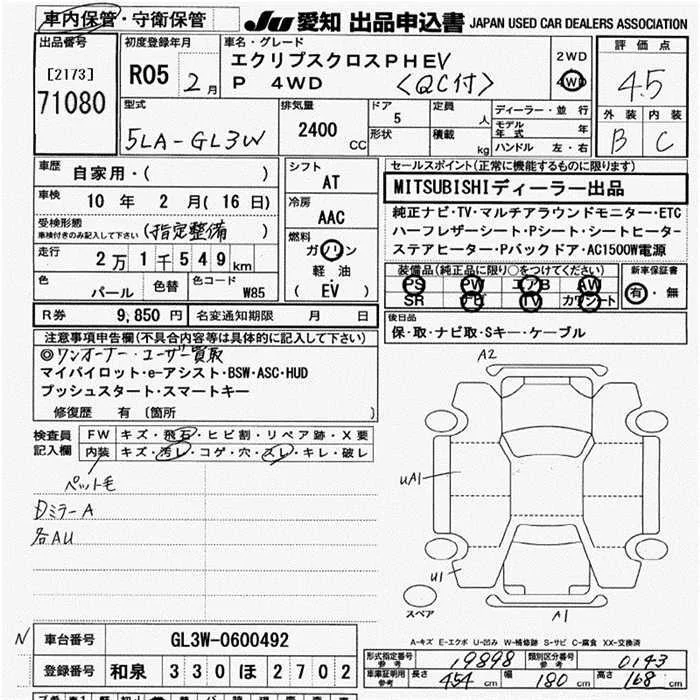 車内保管・守衛保管
JU 愛知 出品申込書 JAPAN USED CAR DEALERS ASSOCIATION
出品番号
[2173]
71080
初度登録年月
R05 2月
車名・グレード
エクリプスクロスPHEV
P 4WD 〈QC付〉
2WD
4WD
評価点
4.5
外装 内装
B C
型式
5LA-GL3W
排気量
2400 CC
ドア
5
形状
定員
人
積載
kg
ディーラー・並行
モデル年式 年
ハンドル 左・右
車歴
自家用・( )
車検
10 年 2 月(16 日)
受検形態
車検付きのみ記入して下さい
(指定整備)
走行
2万1千549km
色
パール
色替
色コード
W85
シフト
AT
冷房
AAC
燃料
ガソリン
軽油
(EV)
セールスポイント(正常に機能するものに限ります)
MITSUBISHIディーラー出品
純正ナビ・TV・マルチアラウンドモニター・ETC
ハーフレザーシート・Pシート・シートヒーター・
ステアヒーター・Pバックドア・AC1500W電源
装備品(純正品に限り○をつけてください)
PS PW エアB AW
SR ナビ TV カワシート
新車保証書
有・無
R券 9,850 円
名変通知期限 月 日
後日品
保・取・ナビ取・Sキー・ケーブル
注意事項申告欄(不具合内容等は具体的に記入して下さい)
◎ワンオーナー・ユーザー買取
マイパイロット・e-アシスト・BSW・ASC・HUD
プッシュスタート・スマートキー
修復歴 有 〔箇所 〕
検査員
記入欄
FW キズ・飛石・ヒビ割・リペア跡・X要
内装 キズ・汚レ・コゲ・穴・スレ・キレ・破レ
ペット毛
Dミラー A
各AU
A2
uA1
U1
A1
スペア
A-キズ E-エクボ U-凹み W-補修跡 S-サビ C-腐食 XX-交換済
N
車台番号
GL3W-0600492
登録番号
和泉 330 ほ 2702
形式指定番号
参考
19898
類別区分番号
参考
0143
車庫証明用
参考
長さ 454 cm
幅 180 cm
高さ 168 cm